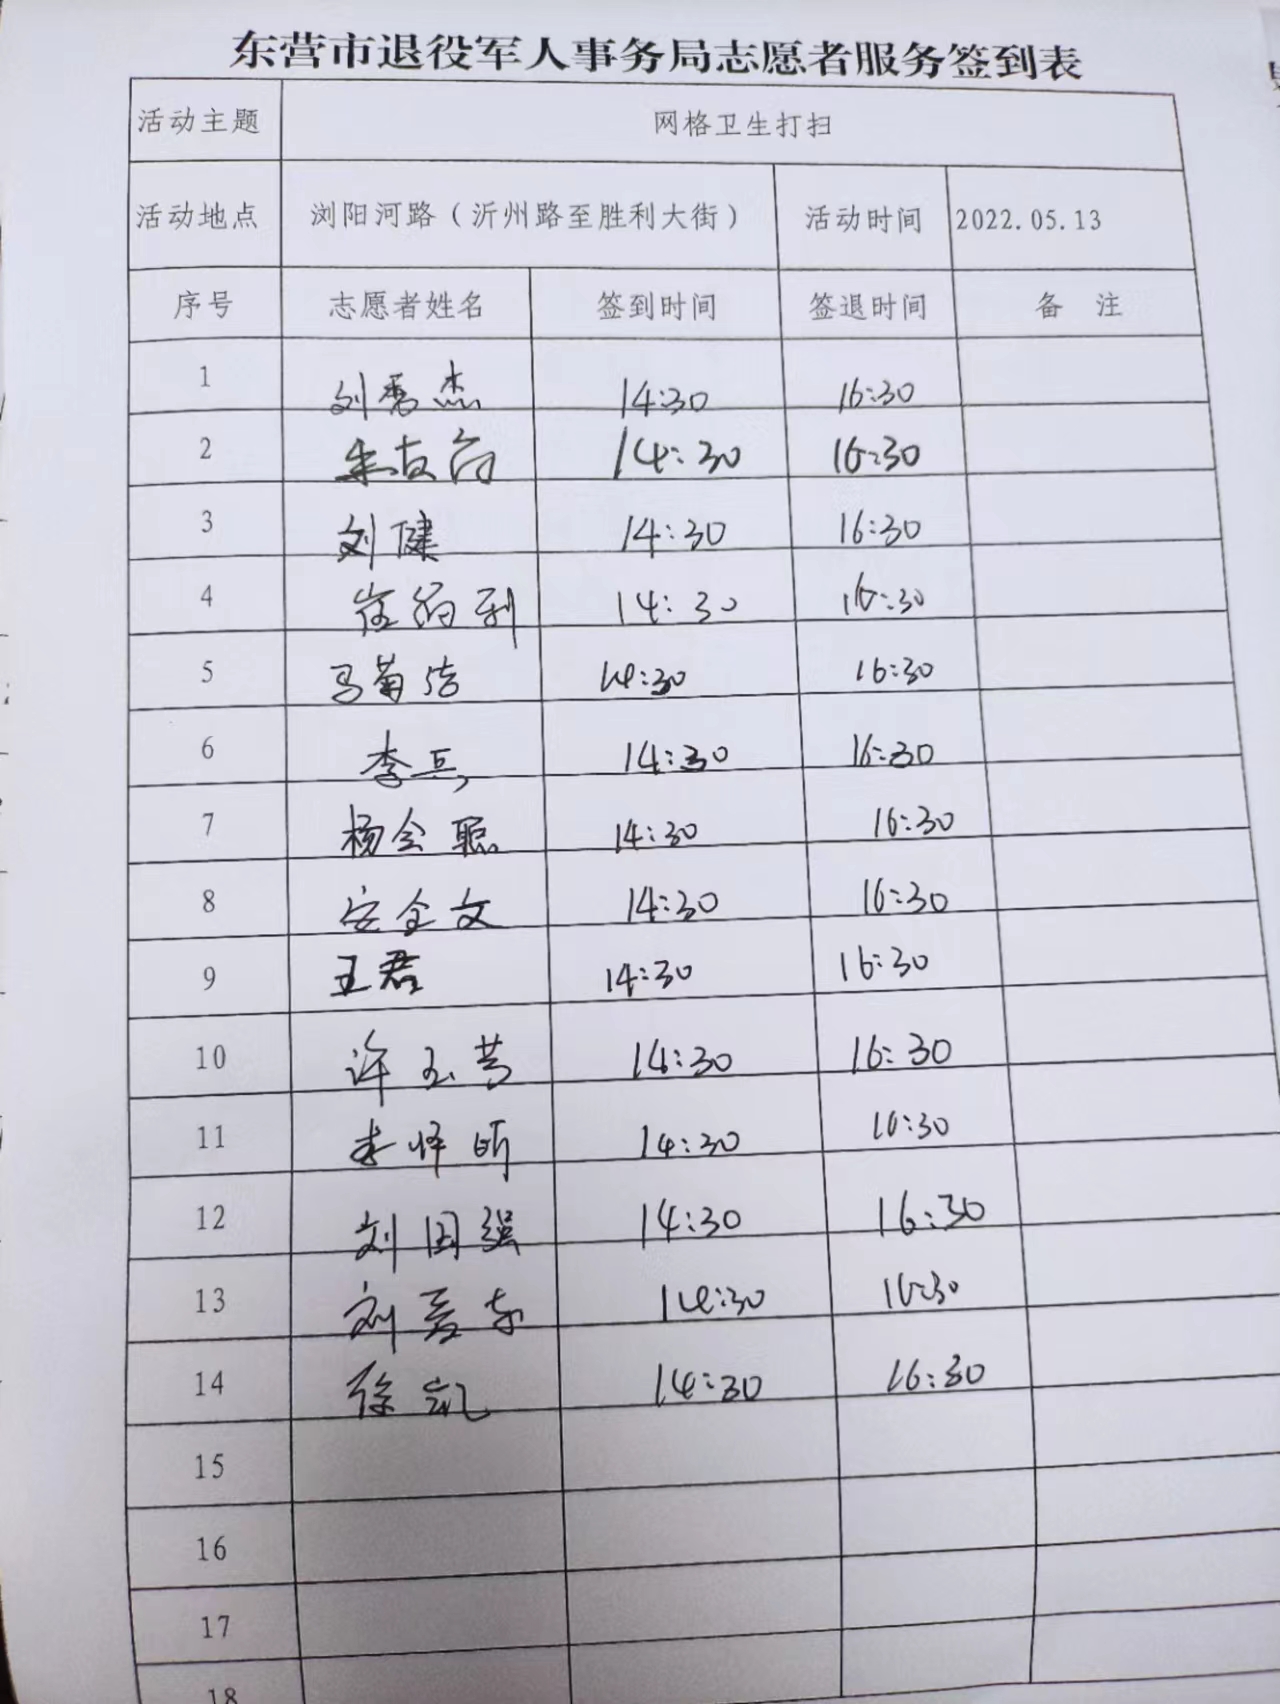 东营市退役军人事务局志愿者服务签到表
活动主题 网格卫生打扫
活动地点 浏阳河路（沂州路至胜利大街） 活动时间 2022.05.13
序号 志愿者姓名 签到时间 签退时间 备 注
1 刘秀杰 14:30 16:30
2 14:30 16:30
3 刘健 14:30 16:30
4 14:30 16:30
5 马菊洁 14:30 16:30
6 李兵 14:30 16:30
7 杨会聪 14:30 16:30
8 安全文 14:30 16:30
9 王君 14:30 16:30
10 许玉 14:30 16:30
11 14:30 16:30
12 刘国强 14:30 16:30
13 刘 14:30 16:30
14 徐凯 14:30 16:30
15
16
17
18